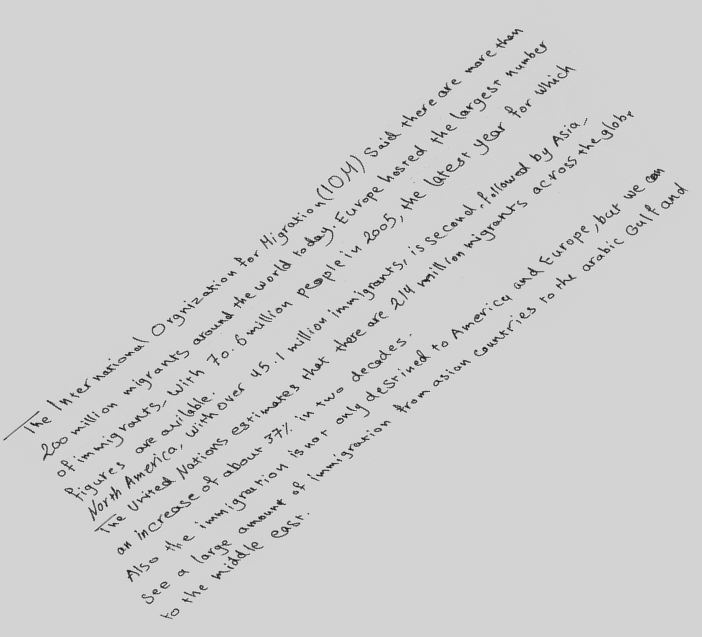 The International Orgnization for Migration (IOM) Said there are more than
200 million migrants around the world today. Europe hosted the largest number
of immigrants, with 70.6 million people in 2005, the latest year for which
figures are avilable.
North America, with over 45.1 million immigrants, is second, followed by Asia.
The United Nations estimates that there are 214 million migrants across the globe,
an increase of about 37% in two decades.
Also the immigration is not only destined to America and Europe, but we can
see a large amount of immigration from asian countries to the arabic Gulf and
to the middle east.